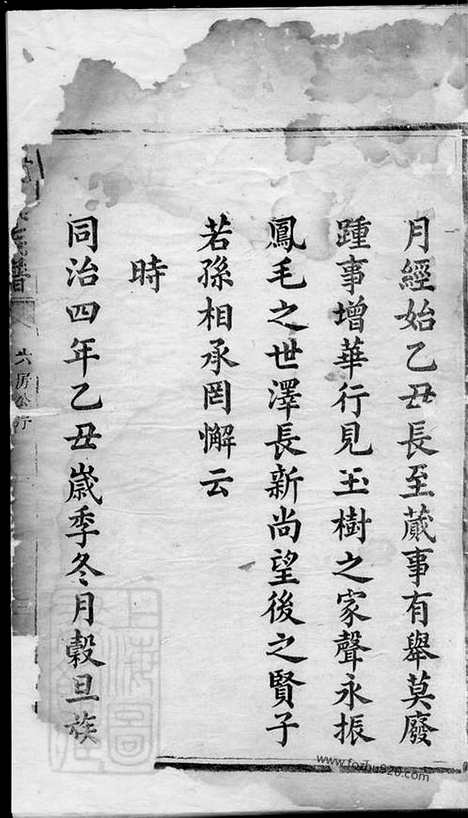 月經始乙丑長至蕆事有舉莫廢
踵事增華行見玉樹之家聲永振
鳳毛之世澤長新尚望後之賢子
若孫相承罔懈云
時
同治四年乙丑歲季冬月穀旦族
譜
六房公行
上海圖
www.fozhu920.com